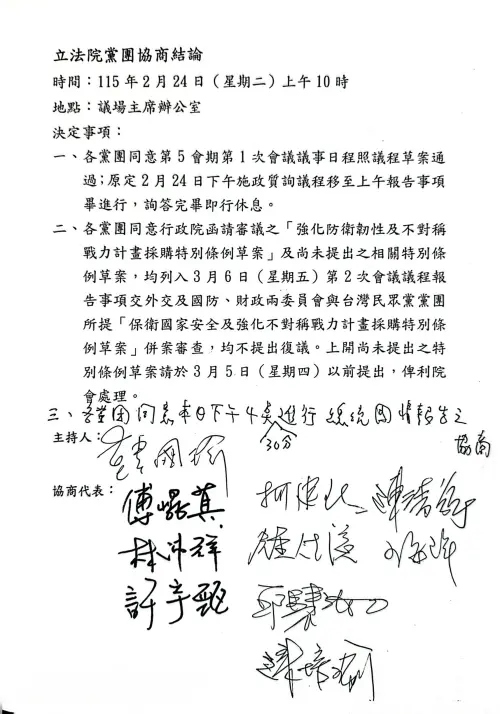 立法院黨團協商結論
時間：115年2月24日（星期二）上午10時
地點：議場主席辦公室
決定事項：
一、各黨團同意第5會期第1次會議議事日程照議程草案通
過；原定2月24日下午施政質詢議程移至上午報告事項
畢進行，詢答完畢即行休息。
二、各黨團同意行政院函請審議之「強化防衛韌性及不對稱
戰力計畫採購特別條例草案」及尚未提出之相關特別條
例草案，均列入3月6日（星期五）第2次會議議程報
告事項交外交及國防、財政兩委員會與台灣民眾黨黨團
所提「保衛國家安全及強化不對稱戰力計畫採購特別條
例草案」併案審查，均不提出復議。上開尚未提出之特
別條例草案請於3月5日（星期四）以前提出，俾利院
會處理。
三、各黨團同意本日下午4點30分進行總統國情報告之
協商
主持人：韓國瑜
協商代表：
傅崐萁 柯建銘 陳清龍
林沛祥 鍾佳濱
許宇甄